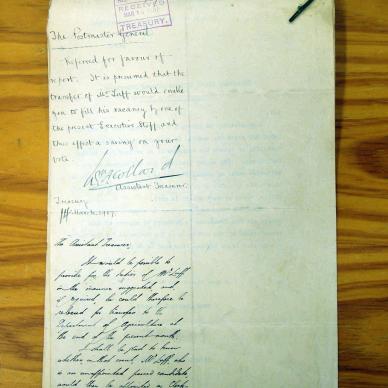 RECEIVED
TREASURY.
The Postmaster General
Referred for favour of
report. It is presumed that the
transfer of Mr Luff would enable
you to fill his vacancy by one of
the present Executive Staff and
thus effect a saving on your
vote
Assistant Treasurer.
Treasury
March, 1907.
The Assistant Treasurer,
It would be possible to
provide for the duties of Mr Luff
in the manner suggested and,
if required, he could therefore be
released for transfer to the
Department of Agriculture at
the end of the present month.
I shall be glad to know
whether in that event, Mr Luff, who
is an unappointed passed candidate
would then be appointed as Clerk,